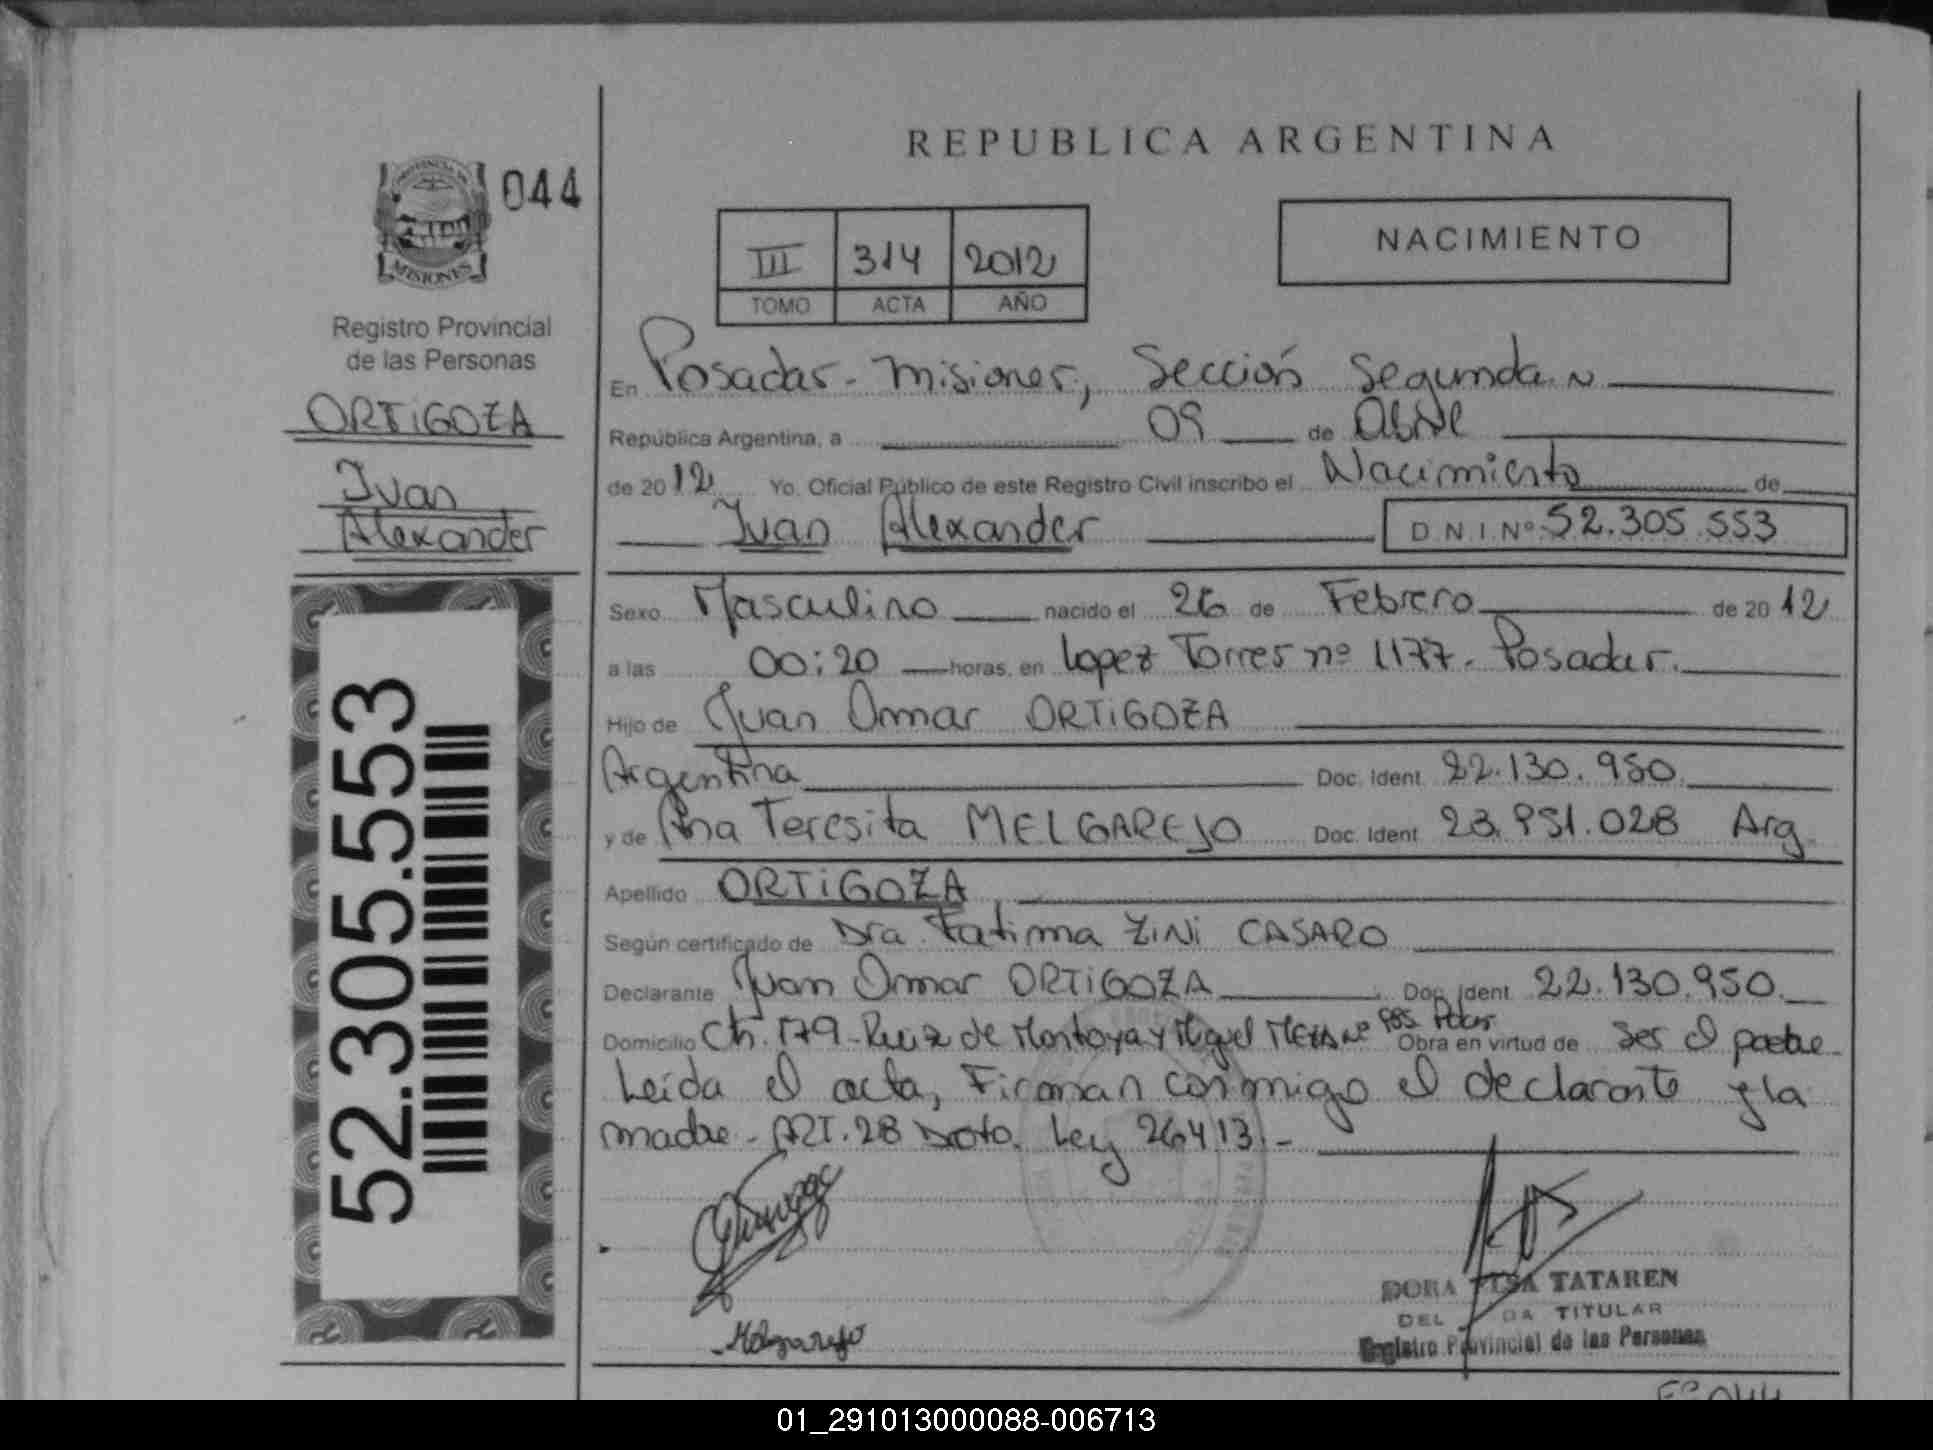 REPUBLICA ARGENTINA
PROVINCIA DE
MISIONES
044
Registro Provincial
de las Personas
ORTIGOZA
Ivan
Alexander
52.305.553
III 314 2012
TOMO ACTA AÑO
NACIMIENTO
En Posadas - Misiones, Sección Segunda
República Argentina, a 09 de Abril
de 2012 Yo, Oficial Público de este Registro Civil inscribo el Nacimiento de
Ivan Alexander D.N.I. Nº 52.305.553
Sexo Masculino nacido el 26 de Febrero de 2012
a las 00:20 horas, en Lopez Torres nº 1177. Posadas.
Hijo de Juan Omar ORTIGOZA
Argentina Doc. Ident. 22.130.950.
y de Ana Teresita MELGAREJO Doc. Ident. 23.951.028 Arg.
Apellido ORTIGOZA
Según certificado de Dra. Fatima ZINI CASARO
Declarante Juan Omar ORTIGOZA Doc. Ident. 22.130.950.
Domicilio Ch. 179 - Ruiz de Montoya y Miguel Nº Obra en virtud de ser el padre.
Leída el acta, Firman conmigo el declarante y la
madre - ART. 28 Ley 26413.-
Melgarejo
DORA ELSA TATAREN
TITULAR
Registro Provincial de las Personas
01_291013000088-006713